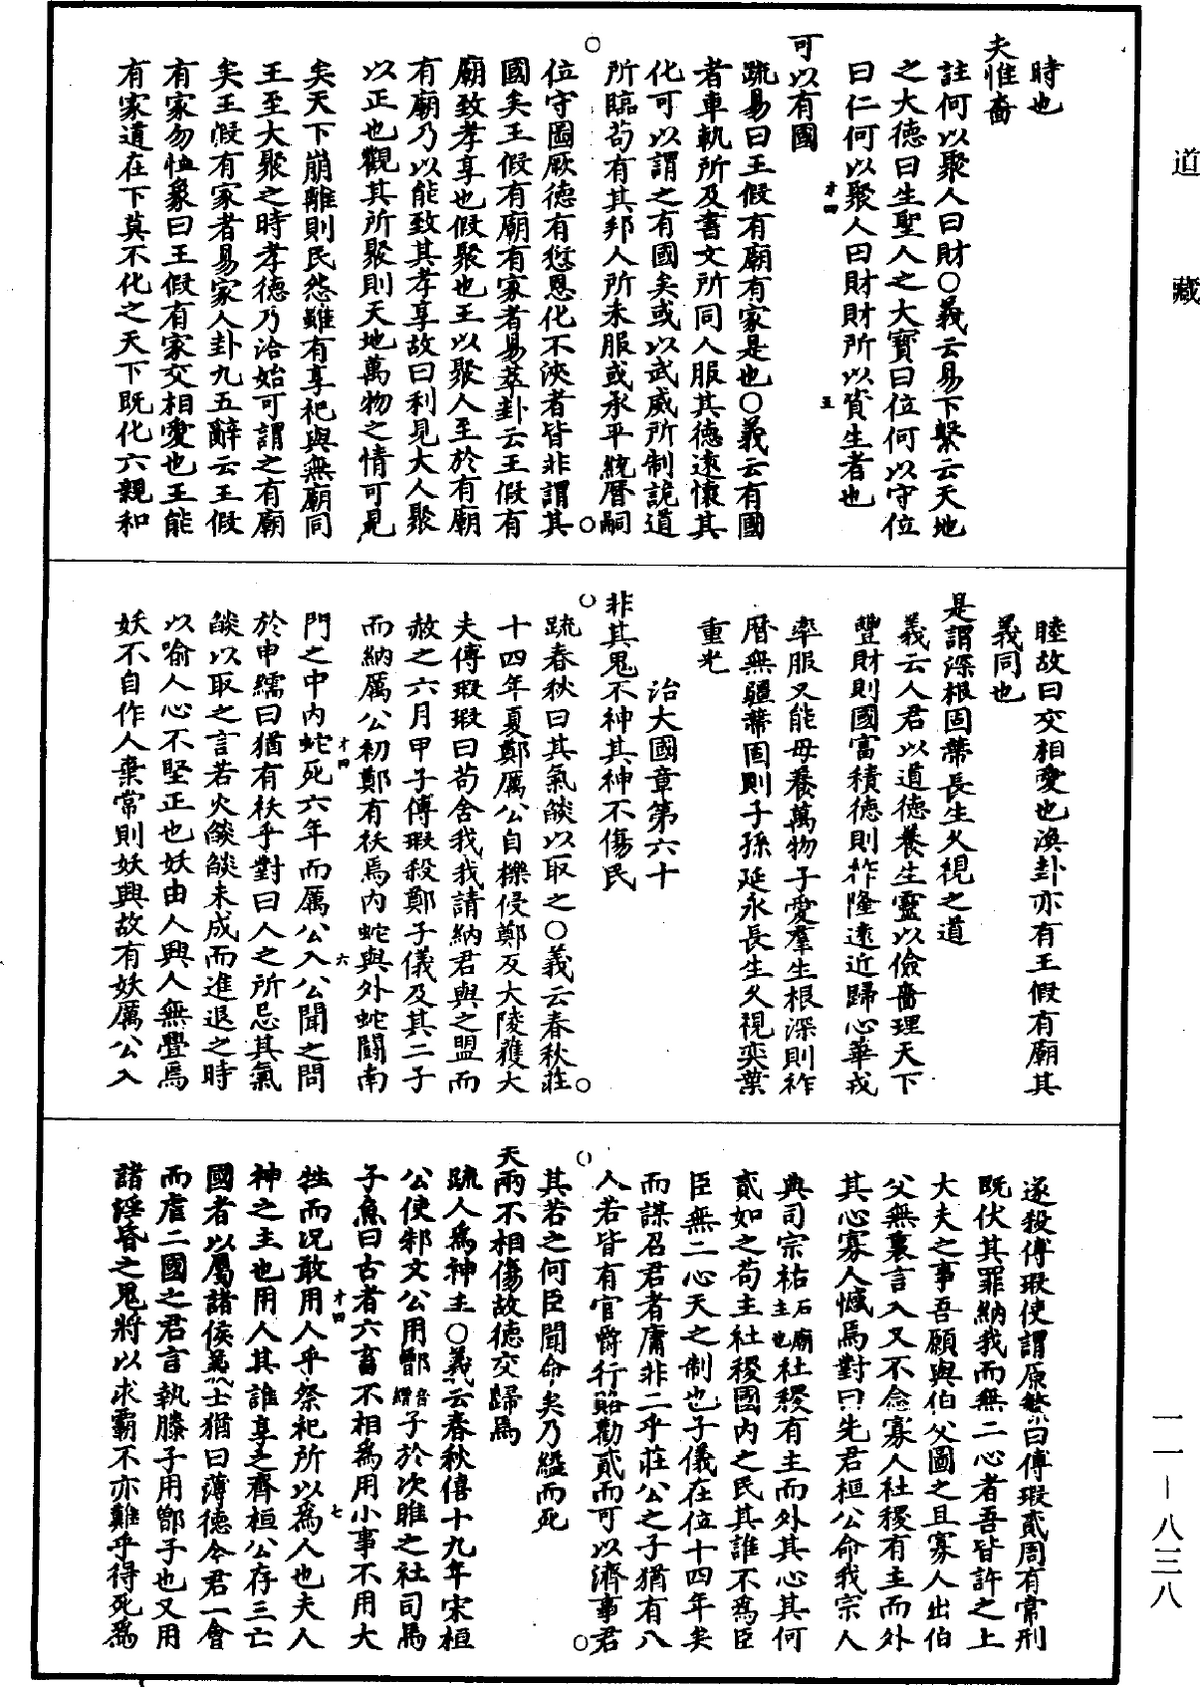 道藏
時也
夫惟嗇
註何以聚人曰財○義云易下繫云天地
之大德曰生聖人之大寶曰位何以守位
曰仁何以聚人曰財財所以資生者也
可以有國
疏易曰王假有廟有家是也○義云有國
者車軌所及書文所同人服其德遠懷其
化可以謂之有國矣或以武威所制詭道
所臨苟有其邦人所未服或承平統曆嗣
位守圖厥德有愆恩化不浹者皆非謂其
國矣王假有廟有家者易萃卦云王假有
廟致孝享也假聚也王以聚人至於有廟
有廟乃以能致其孝享故曰利見大人聚
以正也觀其所聚則天地萬物之情可見
矣天下崩離則民怨雖有享祀與無廟同
王至大聚之時孝德乃洽始可謂之有廟
矣王假有家者易家人卦九五辭云王假
有家勿恤象曰王假有家交相愛也王能
有家道在下莫不化之天下既化六親和
睦故曰交相愛也渙卦亦有王假有廟其
義同也
是謂深根固蔕長生久視之道
義云人君以道德養生靈以儉嗇理天下
豐財則國富積德則祚隆遠近歸心華戎
率服又能母養萬物子愛羣生根深則祚
曆無疆蔕固則子孫延永長生久視奕葉
重光
治大國章第六十
非其鬼不神其神不傷民
疏春秋曰其氣燄以取之○義云春秋莊
十四年夏鄭厲公自櫟侵鄭及大陵獲大
夫傅瑕瑕曰苟舍我我請納君與之盟而
赦之六月甲子傅瑕殺鄭子儀及其二子
而納厲公初鄭有祅焉內蛇與外蛇鬭南
門之中內蛇死六年而厲公入公聞之問
於申繻曰猶有祅乎對曰人之所忌其氣
燄以取之言若火燄燄未成而進退之時
以喻人心不堅正也妖由人興人無舋焉
妖不自作人棄常則妖興故有妖厲公入
遂殺傅瑕使謂原繁曰傅瑕貳周有常刑
既伏其罪納我而無二心者吾皆許之上
大夫之事吾願與伯父圖之且寡人出伯
父無裏言入又不念寡人社稷有主而外
其心寡人憾焉對曰先君桓公命我宗人
典司宗祏石廟主也社稷有主而外其心其何
貳如之苟主社稷國內之民其誰不為臣
臣無二心天之制也子儀在位十四年矣
而謀召君者庸非二乎莊公之子猶有八
人若皆有官爵行賂勸貳而可以濟事君
其若之何臣聞命矣乃縊而死
天兩不相傷故德交歸焉
疏人為神主○義云春秋僖十九年宋桓
公使邾文公用鄫音繒子於次睢之社司馬
子魚曰古者六畜不相為用小事不用大
牲而況敢用人乎祭祀所以為人也夫人
神之主也用人其誰享之齊桓公存三亡
國者以屬諸侯義士猶曰薄德今君一會
而虐二國之君言執滕子用鄫子也又用
諸淫昏之鬼將以求霸不亦難乎得死為
才四
五
才四
六
才四
七
一一－八三八